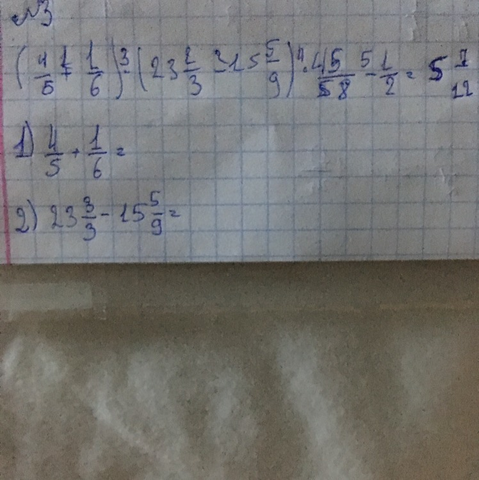 №3
(4/5 + 1/6) : (23 2/3 - 15 5/9) · 45/58 - 1/2 = 5 7/12
1) 4/5 + 1/6 =
2) 23 3/3 - 15 5/9 =